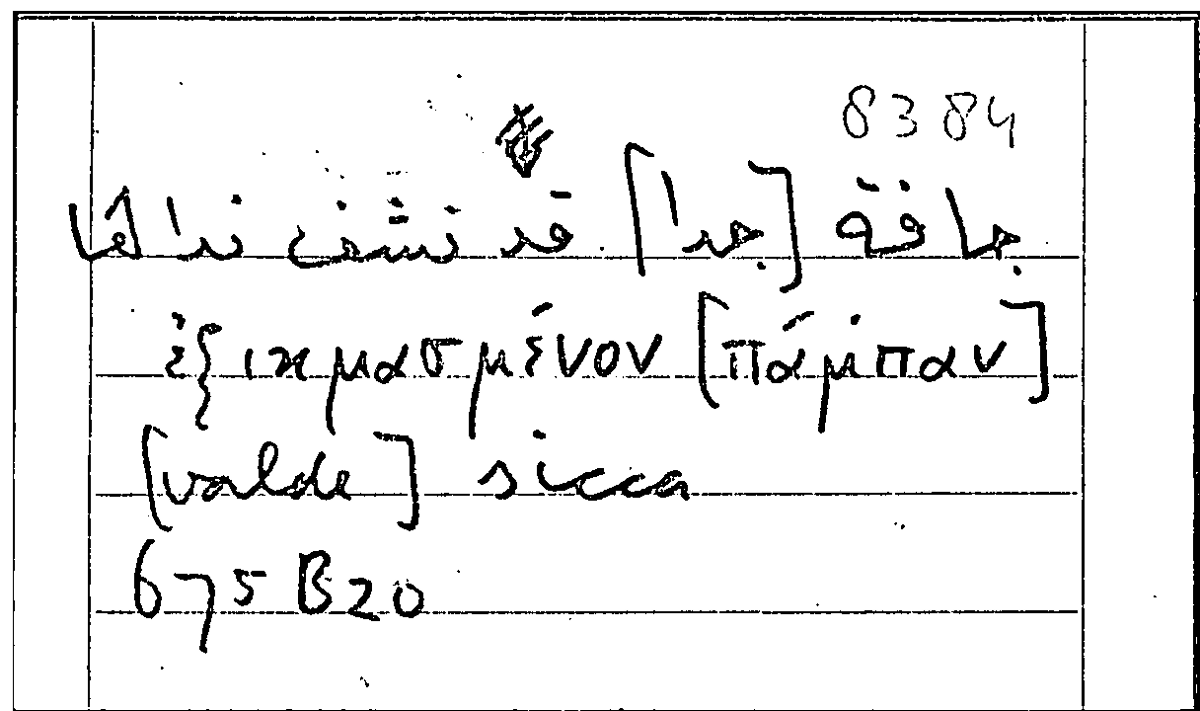 8384
جافة [جدا] قد نشف نداها
ἐξικμασμένον [πάμπαν]
[valde] sicca
675 B20